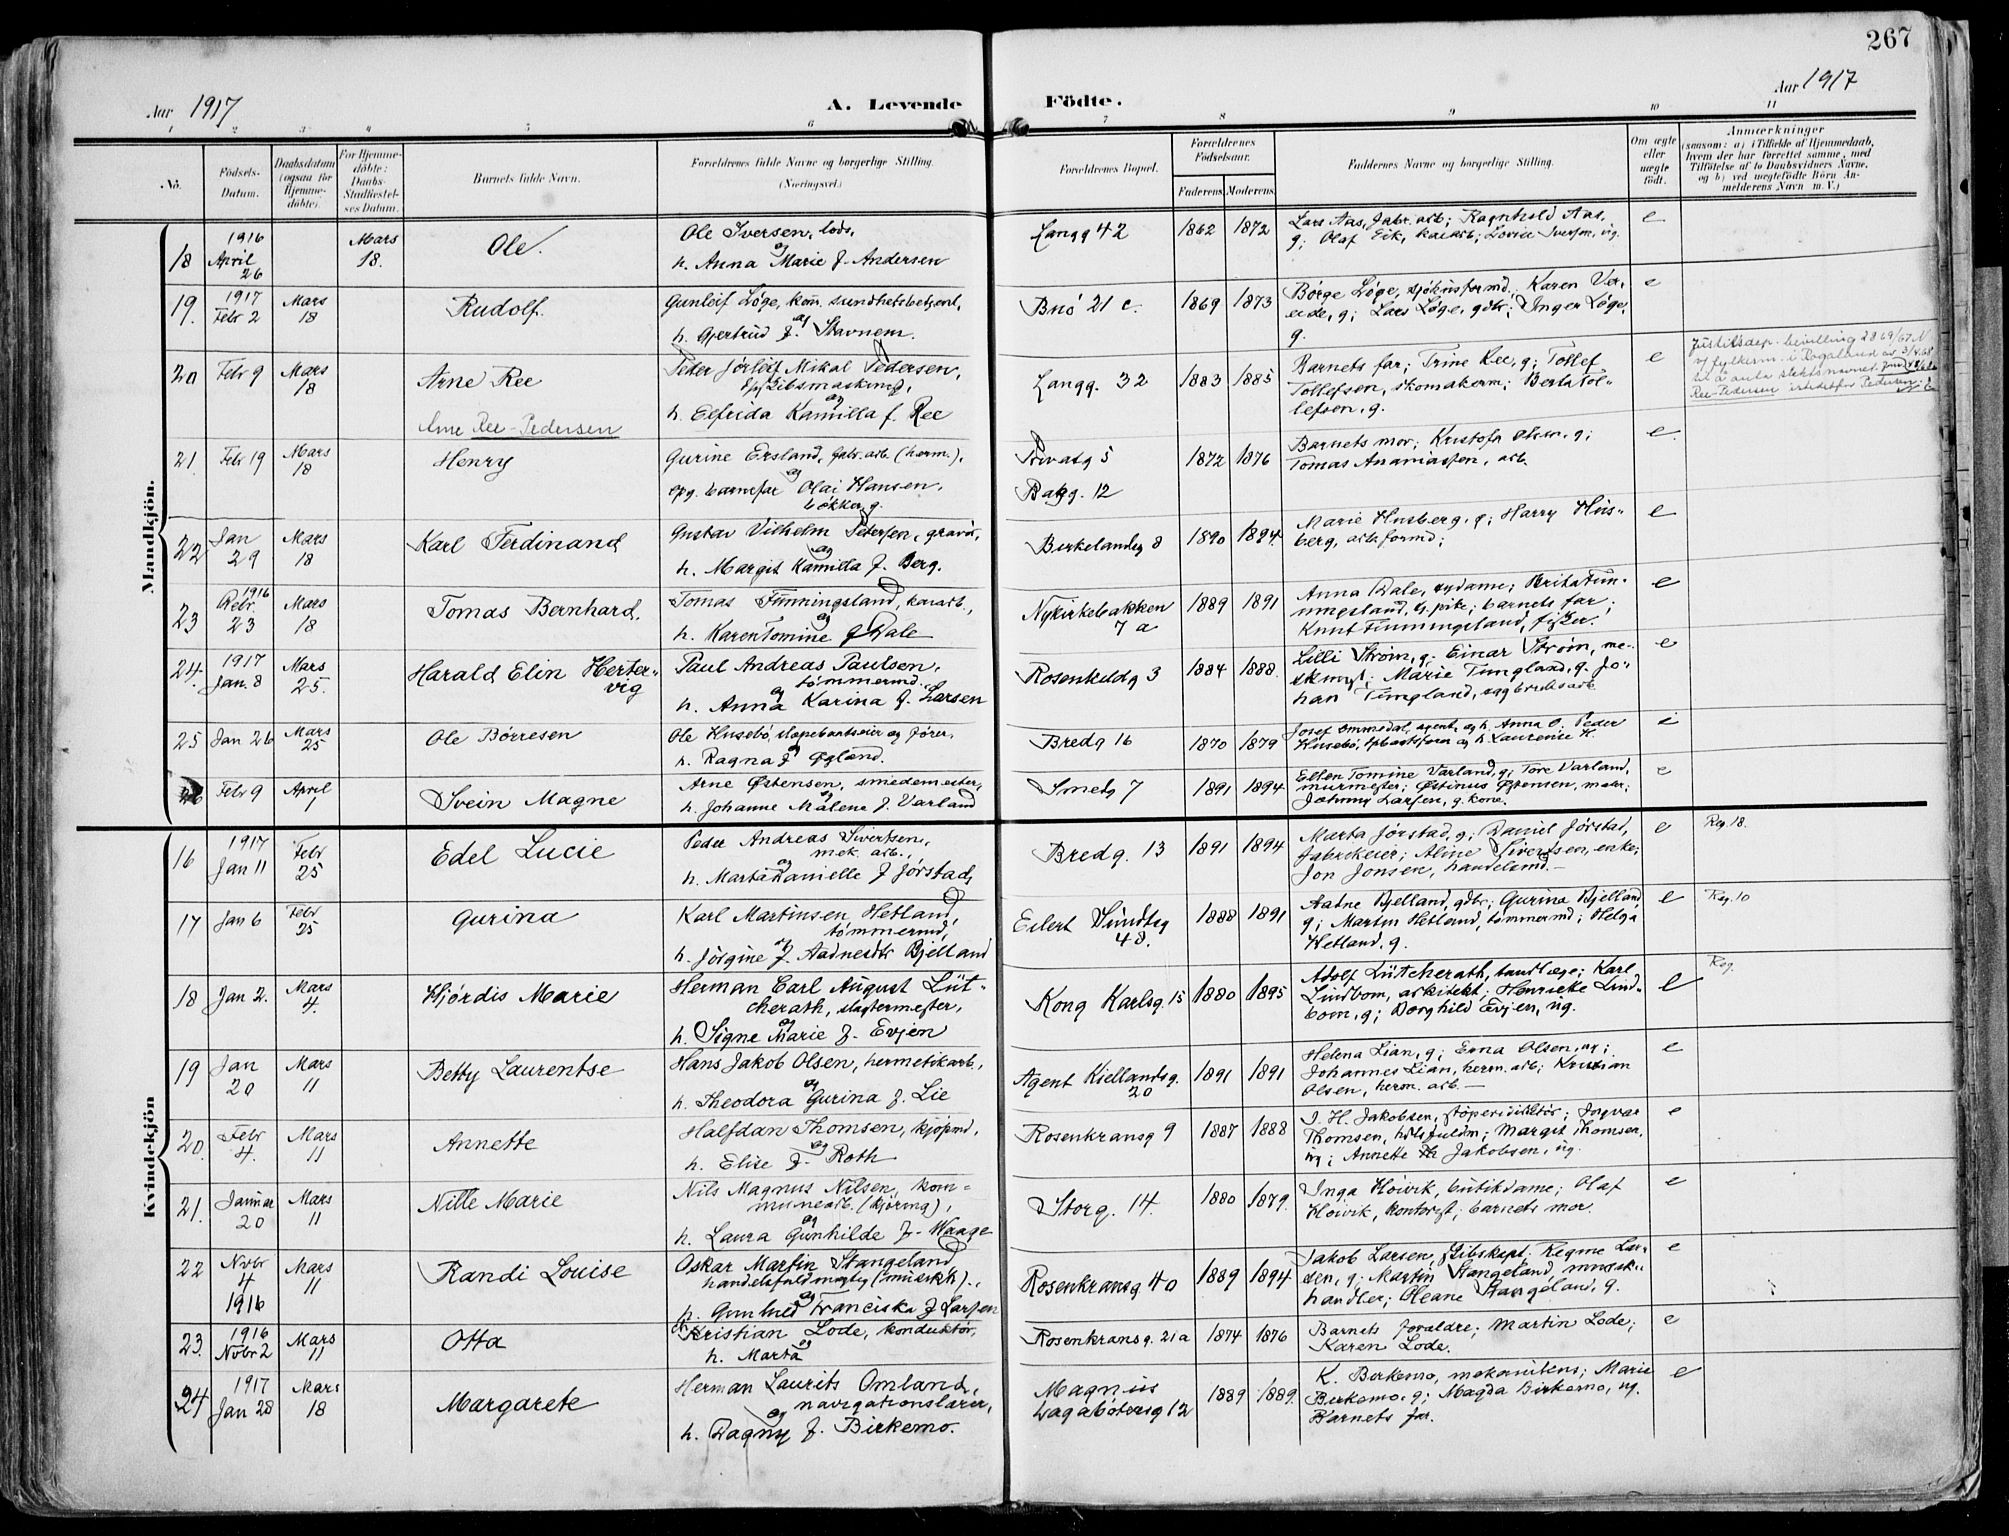 267
Aar 1917
A. Levende
Födte.
Aar 1917
1 2 3 4 5 6 7 8 9 10 11
No.
Födsels-Datum.
Daabsdatum (ogsaa for Hjemme-döbte).
For Hjemme-döbte: Daabs-Stadfæstel-ses Datum.
Barnets fulde Navn.
Forældrenes fulde Navne og borgerlige Stilling.
(Næringsvei.)
Forældrenes Bopæl.
Forældrenes Födselsaar.
Faderens. Moderens.
Faddernes Navne og borgerlige Stilling.
Om ægte eller uægte födt.
Anmærkninger
(saasom: a) i Tilfælde af Hjemmedaab, hvem der har forrettet samme, med Tilföielse af to Daabsvidners Navne, og b) ved uægtefödte Börn An-melderens Navn m. V.)
Mandkjön.
18 1916 April 26 Mars 18. Ole.
Ole Iversen, lods,
og
h. Anna Marie f. Andersen
Langg 42 1862 1872
Lars Aas, fabr. arb; Ragnhold Aas,
g; Olaf Eik, kaiarb; Lovise Iversen, ug.
e
19. 1917 Febr 2 Mars 18 Rudolf.
Gunleif Löge, kom. sundhetsbetjent,
og
h. Gjertrud f. Stavnem.
Bnö 21 c. 1869 1873
Börge Löge, sjökusformd.; Karen Ve-
eide, g; Lars Löge, gdbr; Inger Löge,
g.
e
20 Febr 9 Mars 18 Arne Ree
Arne Ree-Pedersen
Peder Jörleif Mikal Pedersen,
og
h. Elfrida Kamilla f. Ree
Langg. 32 1883 1885
Barnets far; Trine Ree, g; Tollef
Tollefsen, skomakerm; Berta Tol-
lefsen, g.
e
Justitsdep. bevilling 2869/67 N
Ree-Pedersen istedetfor Pedersen.
21. Febr 19 Mars 18 Henry
Gurine Ersland, fabr. arb. (herm.),
og
opg. barnefar Olai Hansen,
bökker, g.
Privatg 5
Bakg. 12
1872 1876
Barnets mor; Kristofa Olsen, g;
Tomas Ananiassen, arb.
e.
22 Jan 29 Mars 18 Karl Ferdinand
Gustav Vilhelm Petersen, gravör,
og
h. Margit Kamilla f. Berg.
Birkelandsg 8 1890 1894.
Marie Husberg, g; Harry Hus-
berg, arb.formd;
e
23 1916 Febr. 23 Mars 18 Tomas Bernhard.
Tomas Finningsland, kaiarb.,
og
h. Karen Tomine f Dale
Nykirkebakken 7 a 1889 1891
Anna Dale, sydame; Brita Fin-
ningsland, tj. pike; barnets far;
Knut Finningsland, fisker.
e
24. 1917 Jan. 8 Mars 25. Harald Elin Herter-
vig
Paul Andreas Paulsen,
tömmermd.
og
h. Anna Karina f. Larsen
Rosenkildg 3 1884 1888.
Lilli Ström, g. Einar Ström, me-
Marie Tungland, g. Jo-
han Tungland, sagbruksarb
e
25 Jan 26 Mars 25 Ole Börresen
Ole Husebö, slæpebaatseier og förer,
og
h. Ragna f Øgland.
Bredg 16 1870 1879
Josef Ommedal, agent, og h. Anna O. Peder
Husebö, og h. Laurense H.
e
26 Febr 9 April 1 Svein Magne
Arne Østensen, smedemester,
og
h. Johanne Malena f. Varland
Smedg 7 1891 1894
Ellen Tomine Varland, g; Tore Varland,
murmester; Østinus Østensen, maler;
Johnny Larsen, g. kone.
e
Kvindekjön
16 1917 Jan 11 Febr 25 Edel Lucie
Peder Andreas Sivertsen,
mek. arb.,
og
h. Marta Danielle f Jörstad,
Bredg. 13 1891 1894
Marta Jörstad, g; Daniel Jörstad,
fabrikeier; Aline Sivertsen, enke;
Jon Jonsen, handelsmd.—
e
Reg. 18.
17 Jan 6 Febr 25 Gurina
Karl Martinsen Hetland,
tömmermd,
og
h. Jörgine f. Aadnesdtr Bjelland
Eilert Sundtsg 48. 1888 1891
Aadne Bjelland, gdbr; Gurina Bjelland
g; Martin Hetland, tömmermd; Helga
Hetland, g.
e
Reg. 10
18 Jan 2. Mars 4. Hjördis Marie
Herman Carl August Lüt-
cherath, slagtermester,
og
h. Signe Marie f. Evjen
Kong Karlsg. 15 1880 1895
Adolf Lütcherath, tandlæge; Karl
Lindbom, arkitekt; Henrieke Lind-
bom, g; Borghild Evjen, ug.
e
Reg.
19 Jan 20 Mars 11 Betty Laurentse
Hans Jakob Olsen, hermetikarb.,
og
h. Theodora Gurina f. Lie
Agent Kiellandsg. 20 1891 1891
Helena Lian, g; Erna Olsen, ug;
Johannes Lian, herm. arb; Kristian
Olsen, herm. arb.—
e
20. Febr 4. Mars 11 Annette
Halfdan Thomsen, kjöpmd,
og
h. Elise f. Roth
Rosenkransg 9 1887 1888
I. H. Jakobsen, stöperidirktör; Ingvar
Thomsen, hdlsfuldm; Margit Thomsen,
ug; Annette Th Jakobsen, ug.
e
21. Januar 20 Mars 11 Nille Marie
Nils Magnus Nilsen, kom-
munearb. (kjöring),
og
h. Laura Gunhilde f. Waage
Storg. 14. 1880 1879.
Inga Höivik, butikdame; Olaf
Höivik, kontorist; barnets mor.
e
22 Nvbr 4 1916 Mars 11 Randi Louise
Oskar Martin Stangeland
handelsfuldmægtig (musikh).,
og
h. Gunhild Franciska f Larsen
Rosenkransg 40 1889 1894
Jakob Larsen, skibskapt; Regine Lar-
sen, g; Martin Stangeland, musik-
handler; Oleane Stangeland, g.
e
23. 1916 Nvbr 2 Mars 11 Otta
Kristian Lode, konduktör,
og
h. Marta
Rosenkransg. 21a 1874 1876
Barnets forældre; Martin Lode;
Karen Lode.
e
24 1917 Jan 28 Mars 18 Margarete
Herman Laurits Omland,
navigationslærer,
og
h. Dagny f. Birkemo.
Magnus
Lagabötersg 12 1889 1889.
K. Birkemo, mekanikens; Marie
Birkemo, g; Magda Birkemo, ug.
Barnets far.
e